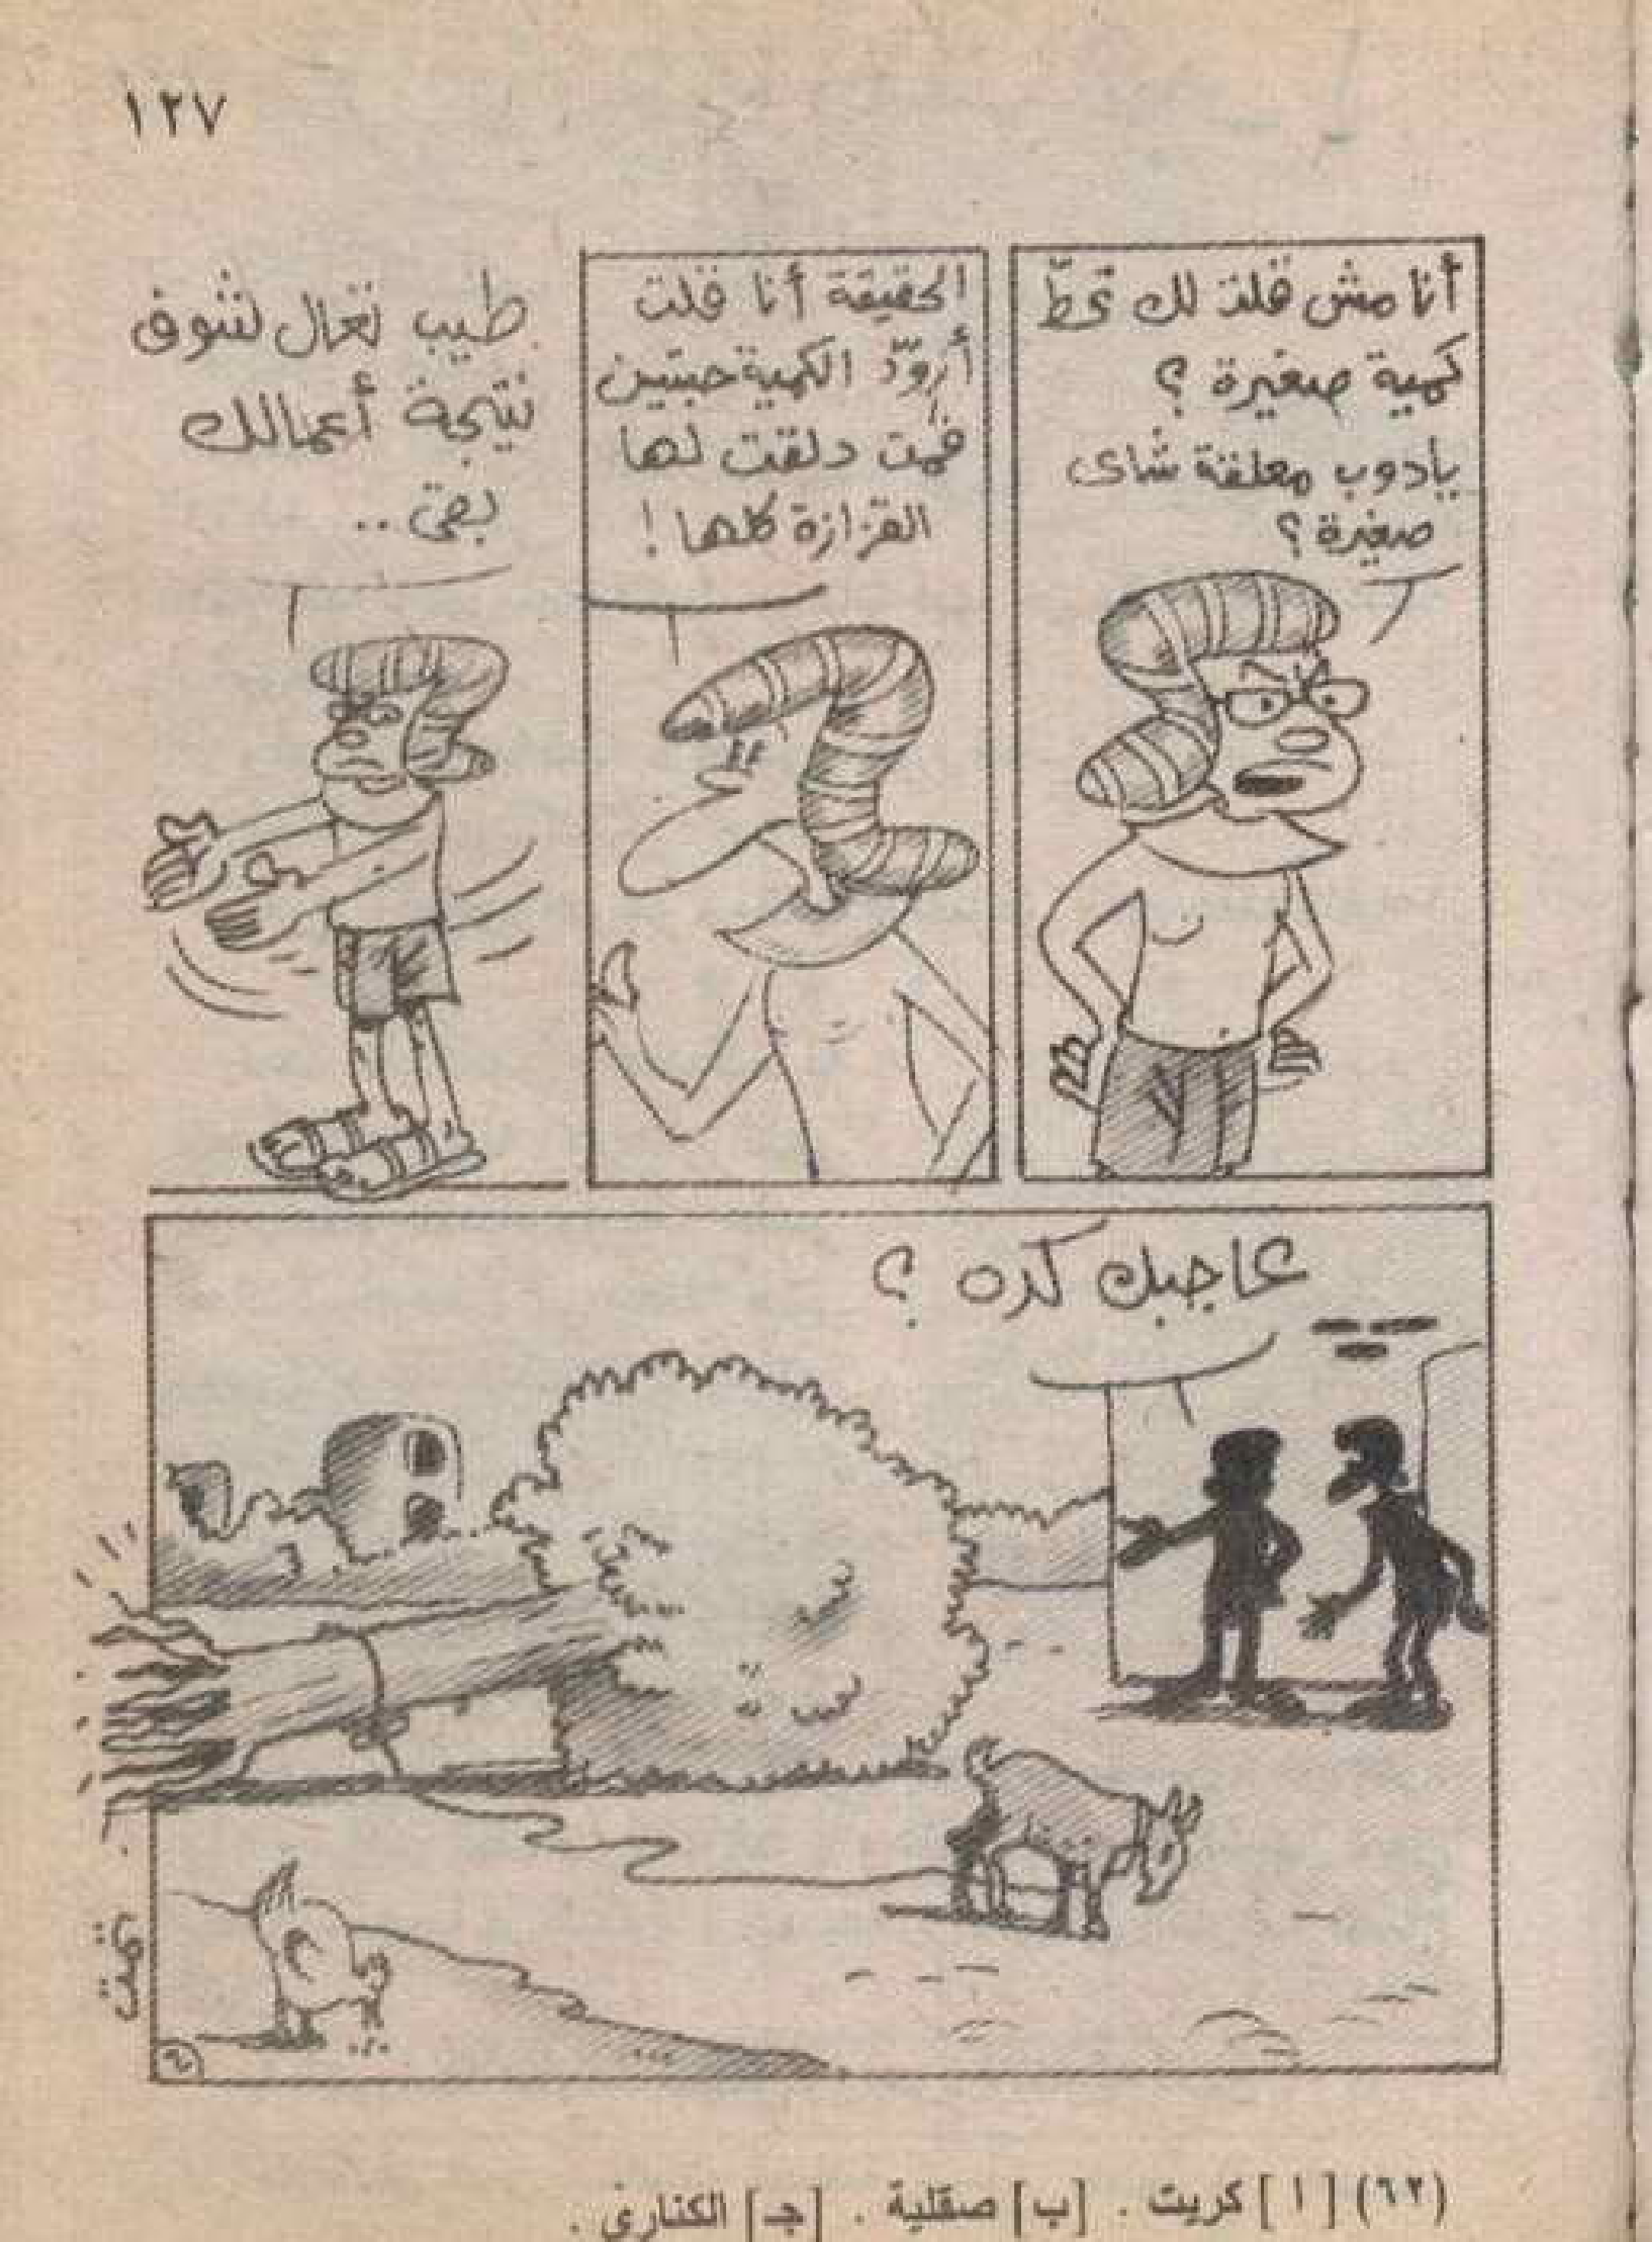 ١٢٧
أنا مش قلت لك تحطّ
كمية صغيرة ؟
يادوب معلقة شاى
صغيرة ؟
الحقيقة أنا قلت
أزوّد الكمية حبتين
قمت دلقت لها
القزازة كلها !
طيب تعال نشوف
نتيجة أعمالك
بقى ..
عاجبك كده ؟
تمت
٩
(٦٢) [ ا ] كريت . [ب] صقلية . [جـ] الكنارى .